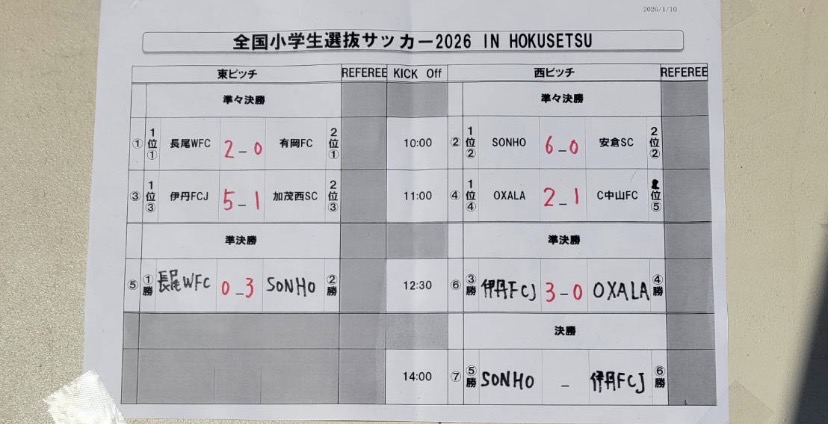 2026/1/10
全国小学生選抜サッカー2026 IN HOKUSETSU
東ピッチ REFEREE KICK Off 西ピッチ REFEREE
準々決勝 準々決勝
① 1位① 長尾WFC 2-0 有岡FC 2位① 10:00 ② 1位② SONHO 6-0 安倉SC 2位②
③ 1位③ 伊丹FCJ 5-1 加茂西SC 2位③ 11:00 ④ 1位④ OXALA 2-1 C中山FC 2位⑤
準決勝 準決勝
⑤ ①勝 長尾WFC 0-3 SONHO ②勝 12:30 ⑥ ③勝 伊丹FCJ 3-0 OXALA ④勝
決勝
14:00 ⑦ ⑤勝 SONHO - 伊丹FCJ ⑥勝